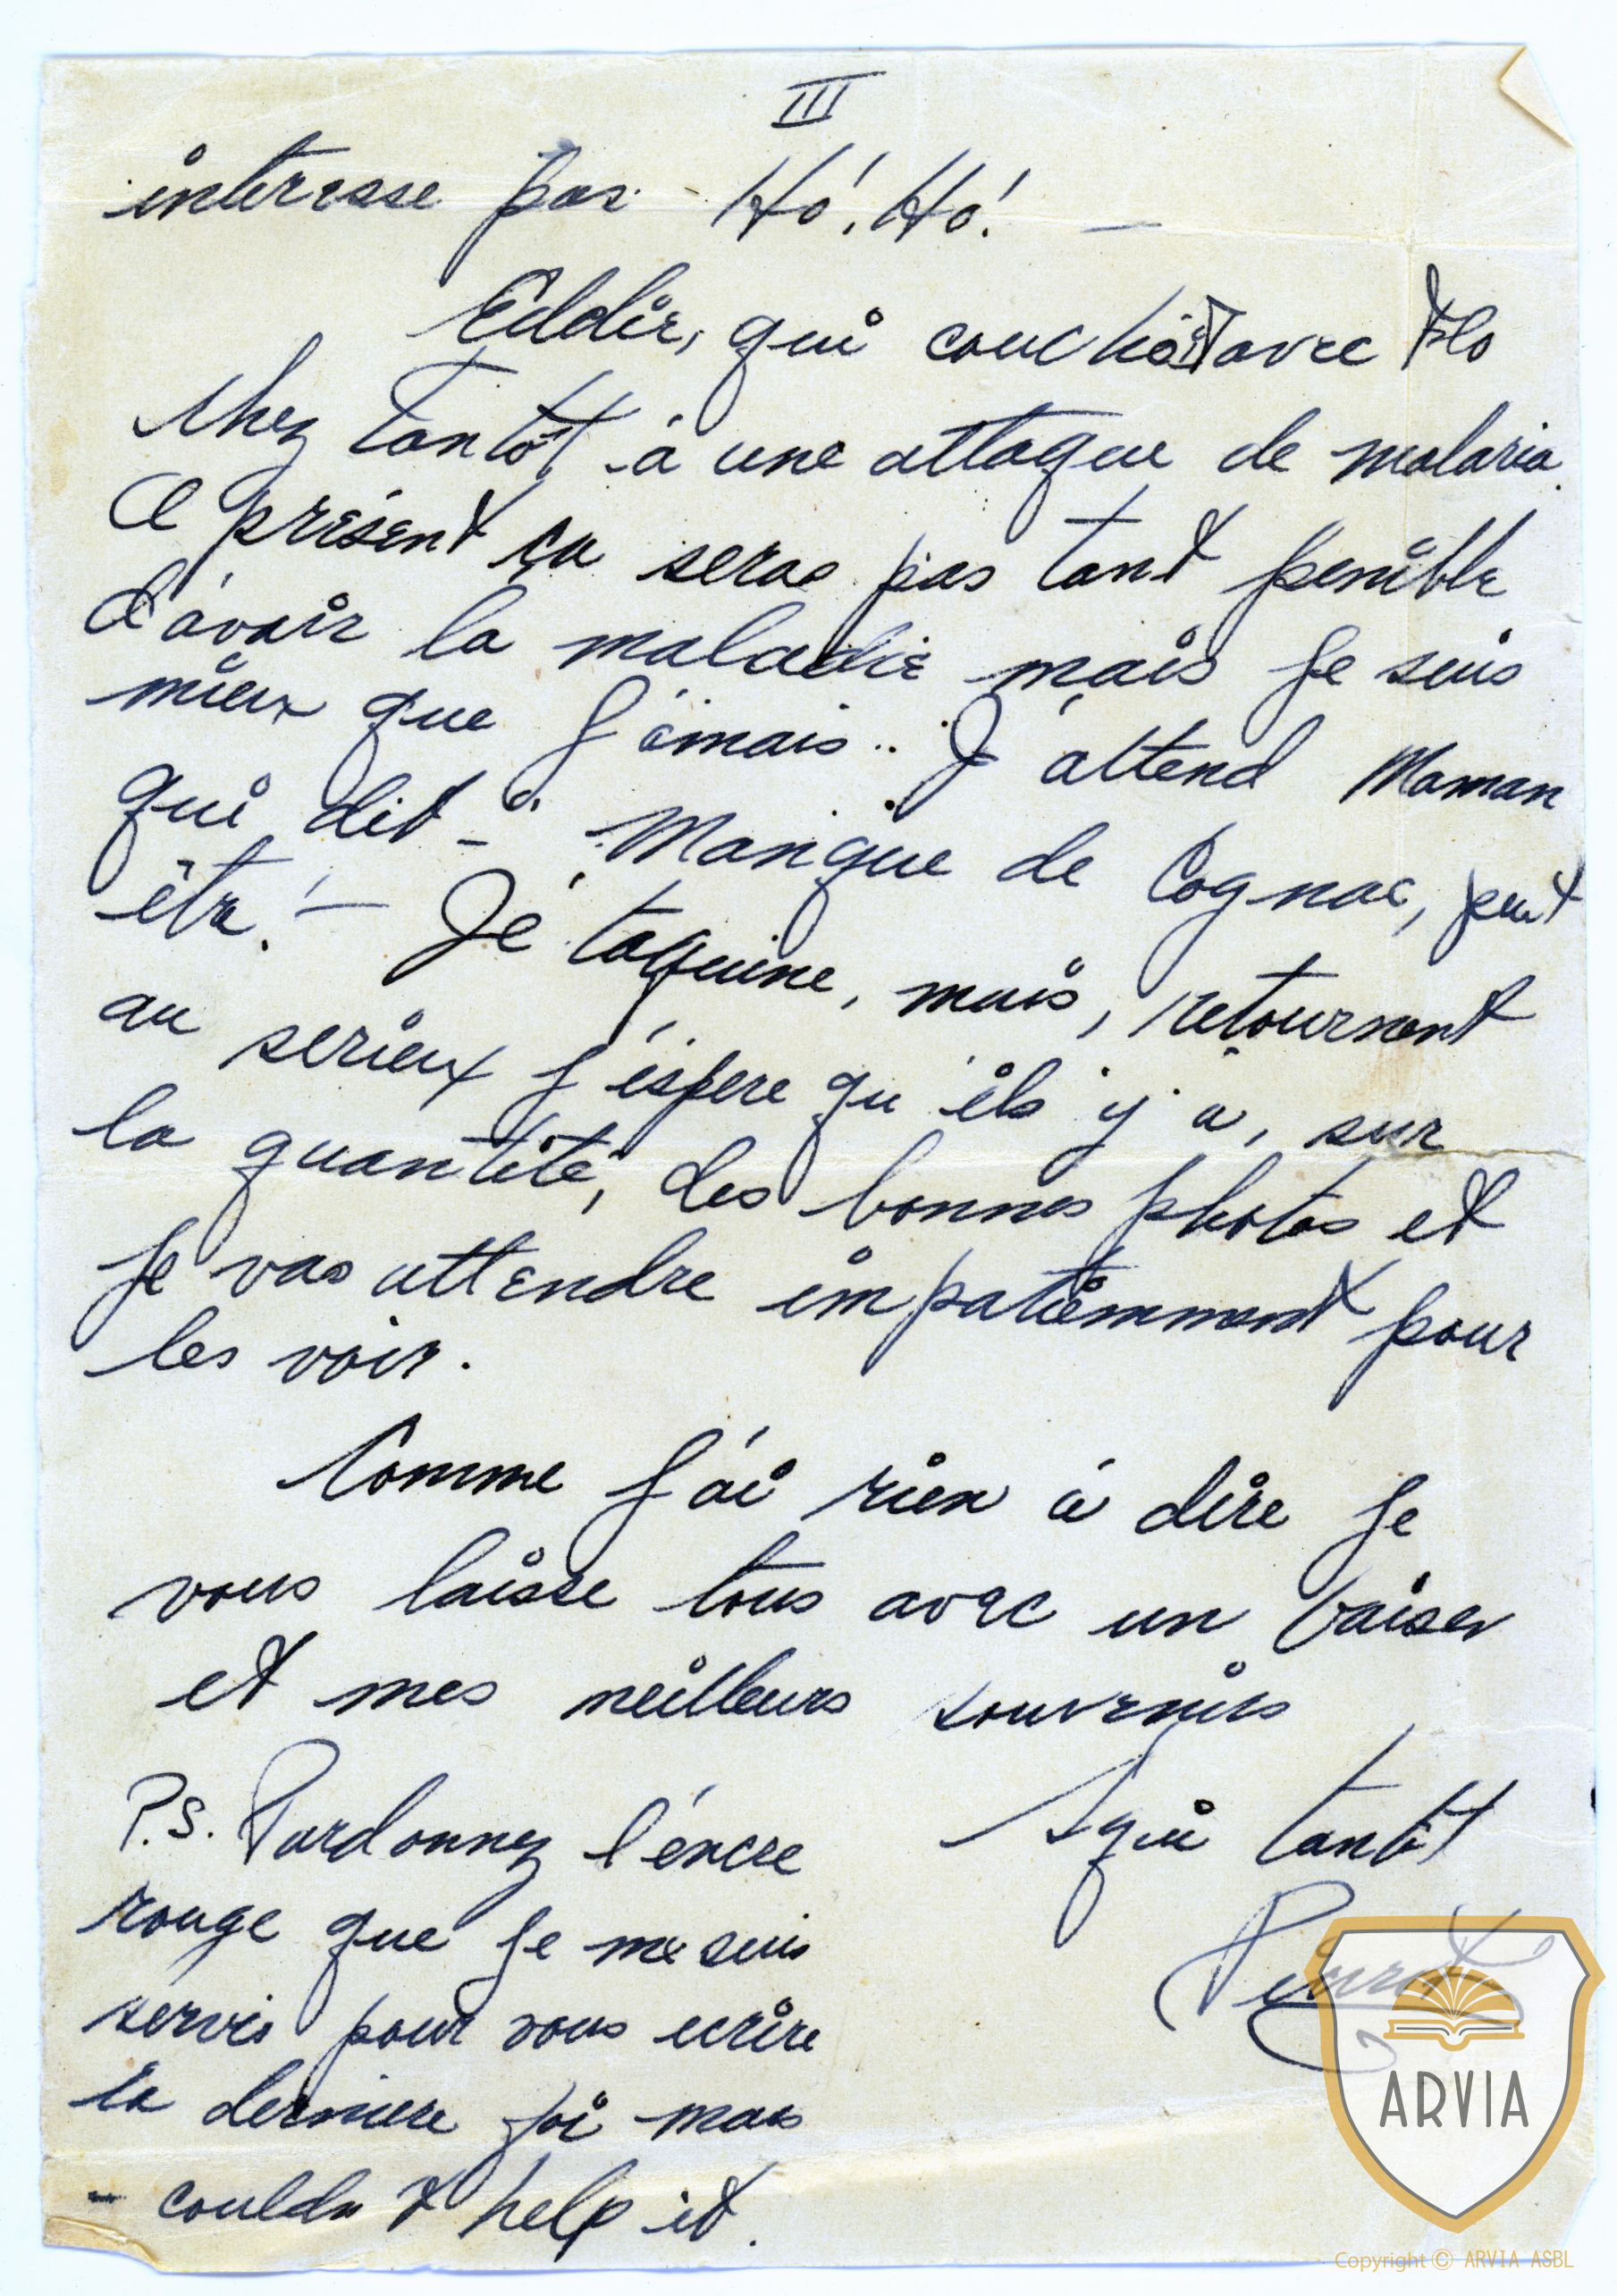 III
interesse pas - Hó! Hó! -
Eddie, qui couchait avec Flo
chez Tantôt à une attaque de malaria.
A présent ça seras pas tant penible
d'avoir la maladie mais je suis
mieux que j'amais.. J'attend Maman
qui dit - "Manque de Cognac, peut
être! - Je taquine, mais, retournent
au serieux j'éspere qu'ils y a, sur
la quantité, des bonnes photos et
je vas attendre impatiemment pour
les voir.
Comme j'ai rien à dire je
vous laisse tous avec un baiser
et mes meilleurs souvenirs
P.S. Pardonnez l'éncre
rouge que je me suis
servis pour vous ecrire
la derniere foi mais
- couldn't help it.
Aqui tantôt
ARVIA
Copyright © ARVIA ASBL